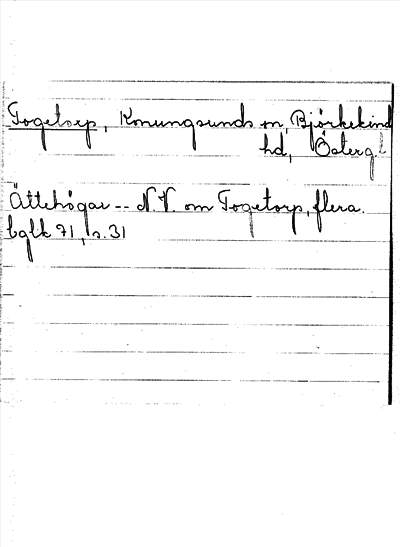 Fogetorp, Konungsunds sn, Björkekind
hd, Östergl.
Ättehögar -- N.V. om Fogetorp, flera.
bglk 71, s.31